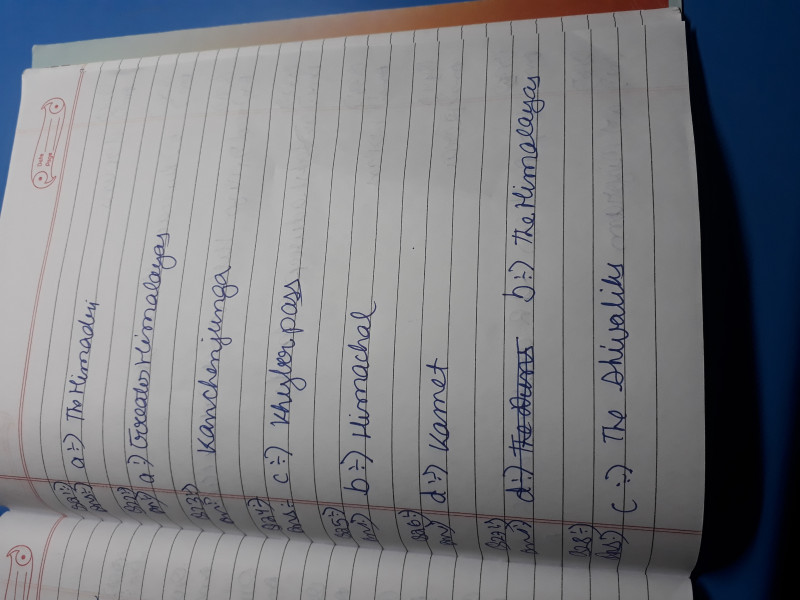 Date
Page
Q1:-)
Ans:-) a:-) The Himadri
Q2:-)
Ans:-) a:-) Greater Himalayas
Q3:-)
Ans:- Kanchenjunga
Q4:-)
Ans:- c:-) Khyber pass
Q5:-)
Ans:-) b:-) Himachal
Q6:-)
Ans:-) d:-) Kamet
Q7:-)
Ans:-) d:-) the Duns b:-) The Himalayas
Q8:-)
Ans:- (c:-) The Shivaliks